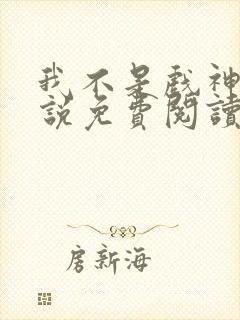 我不是戲神
說免費閱讀
房新海